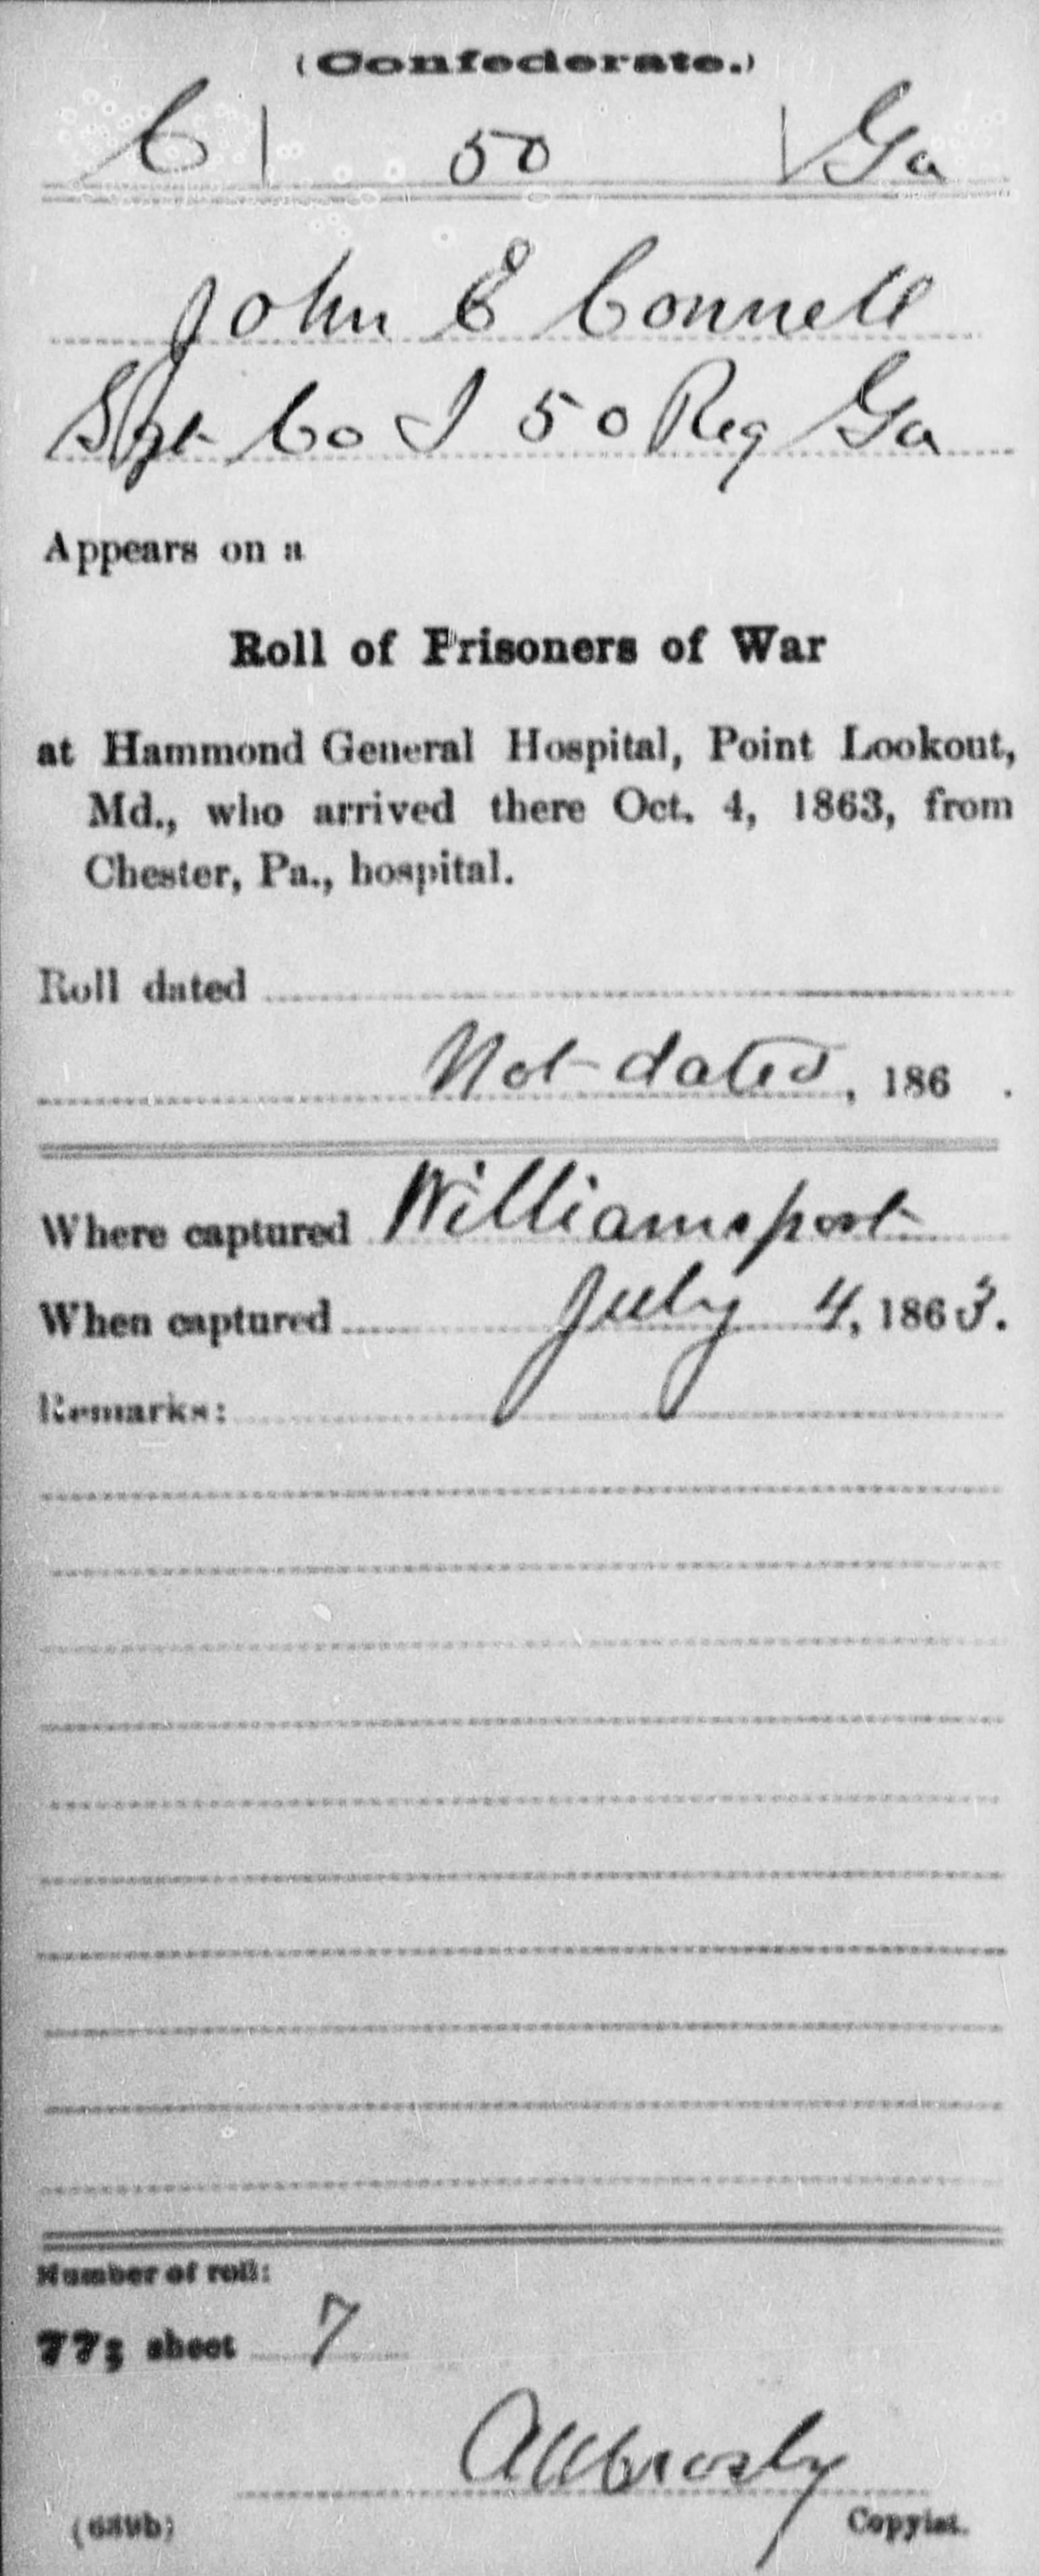 (Confederate.)
C | 50 | Ga
John E Connell
Sgt Co I 50 Reg Ga
Appears on a
Roll of Prisoners of War
at Hammond General Hospital, Point Lookout,
Md., who arrived there Oct. 4, 1863, from
Chester, Pa., hospital.
Roll dated
Not dated, 186 .
Where captured Williamsport
When captured July 4, 1863.
Remarks:
Number of roll:
77; sheet 7
Copyist.